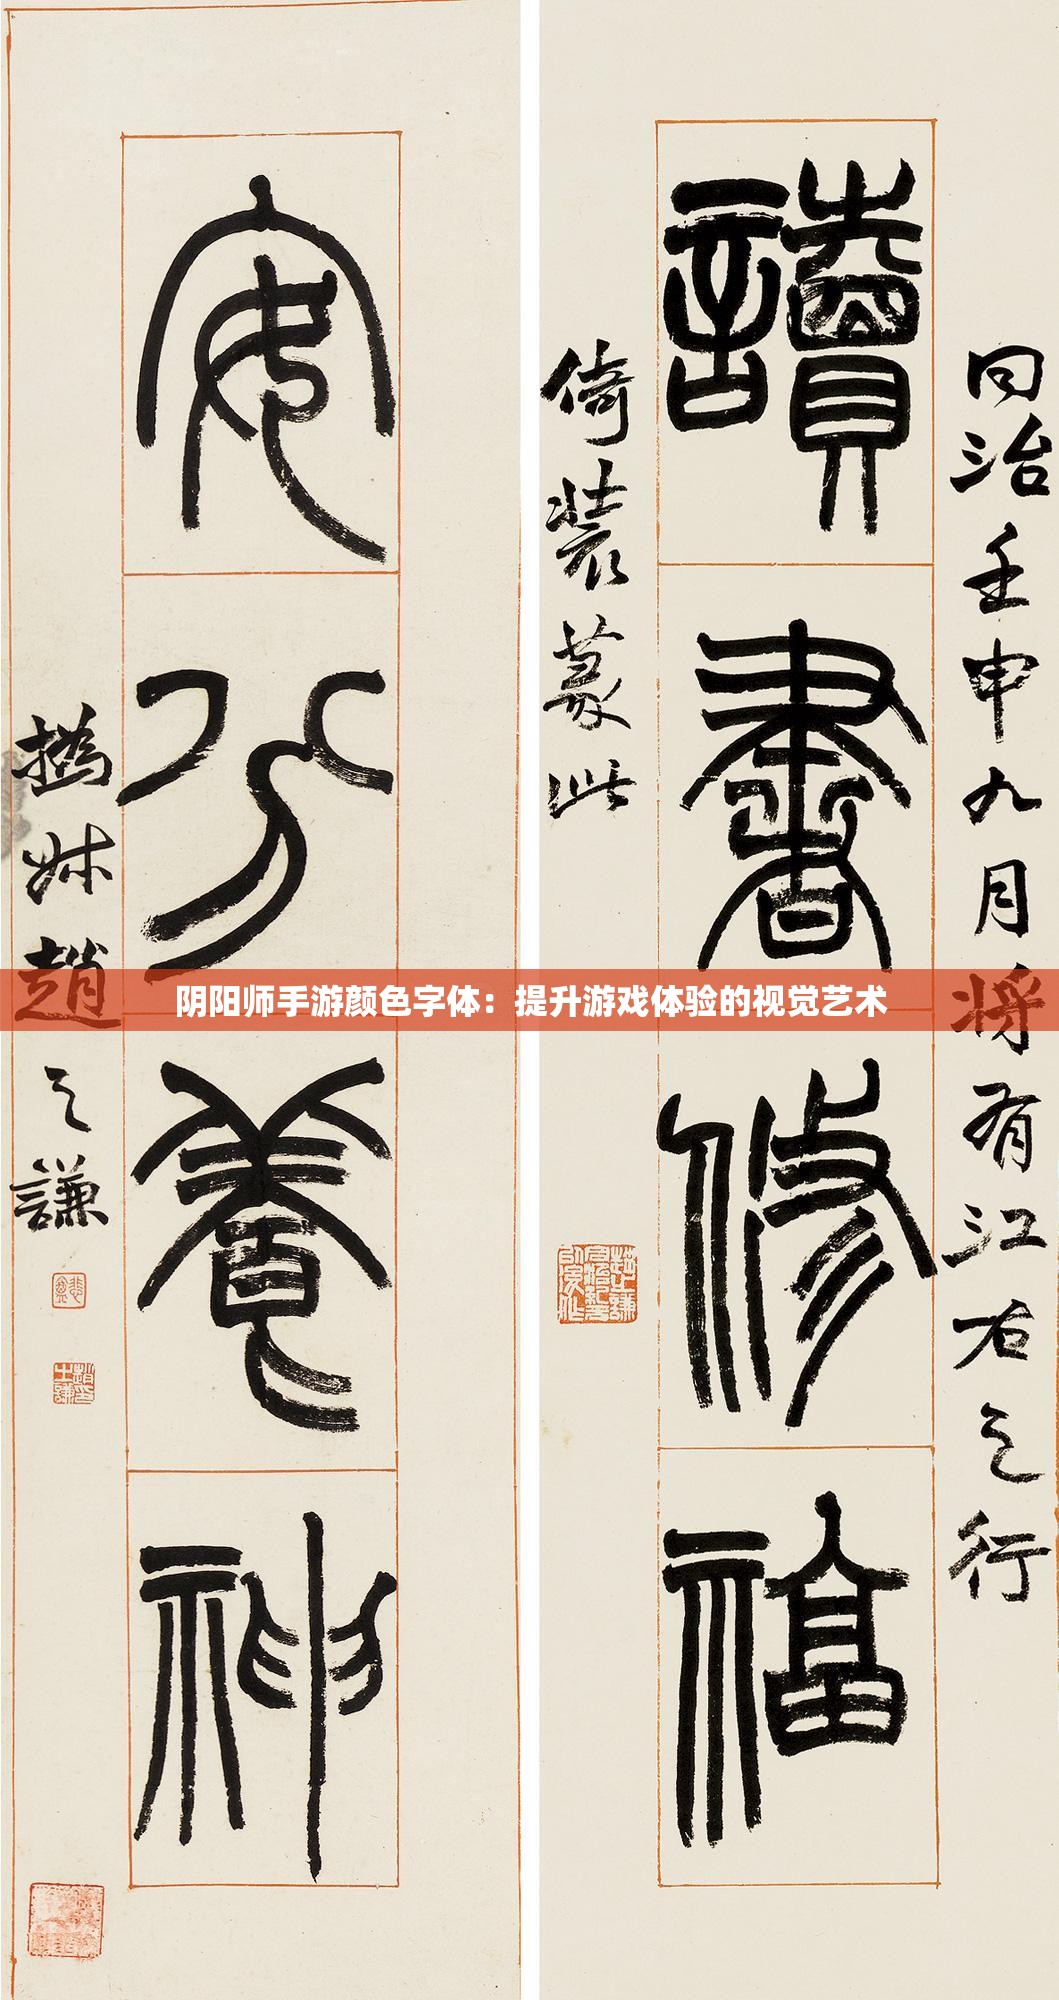 同治壬申九月将有江右之行
讀書修福
倚裝篆此
安分養神
撝叔趙之謙
悲盦
阴阳师手游颜色字体：提升游戏体验的视觉艺术